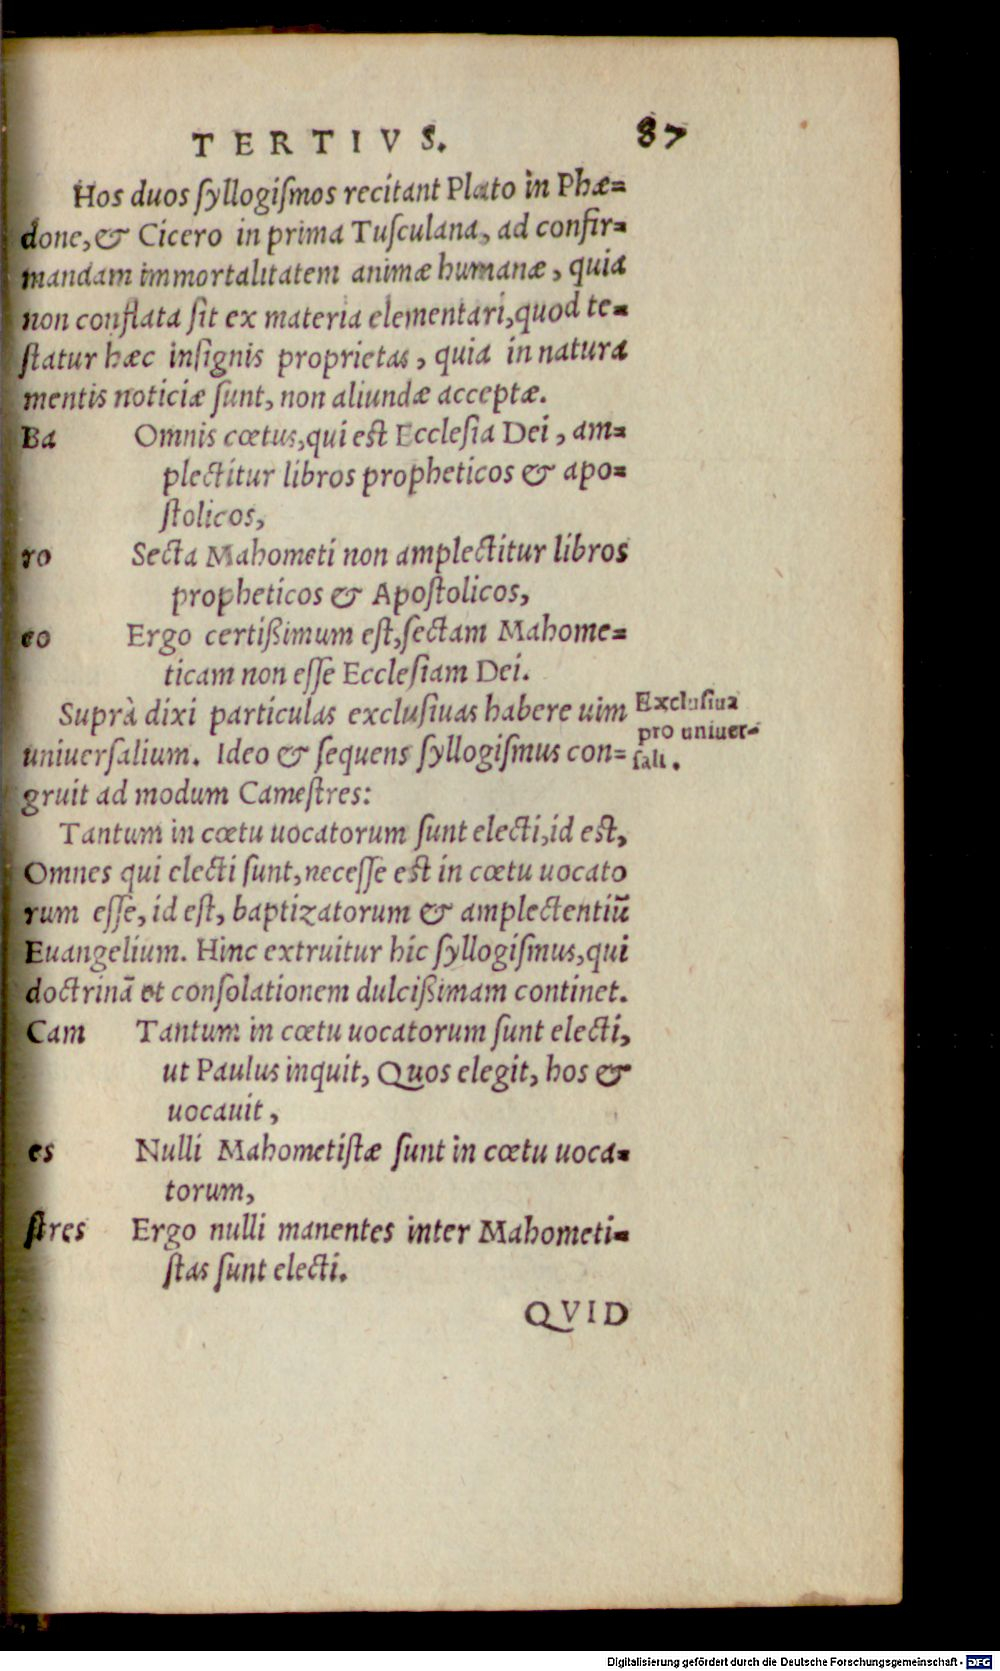 TERTIVS. 87
Hos duos ſyllogiſmos recitant Plato in Phæ=
done, & Cicero in prima Tuſculana, ad confir=
mandam immortalitatem animæ humanæ, quia
non conflata ſit ex materia elementari, quod te=
ſtatur hæc inſignis proprietas, quia in natura
mentis noticiæ ſunt, non aliundæ acceptæ.
Ba Omnis cœtus, qui est Eccleſia Dei, am=
plectitur libros propheticos & apo=
ſtolicos,
ro Secta Mahometi non amplectitur libros
propheticos & Apoſtolicos,
co Ergo certißimum eſt, ſectam Mahome=
ticam non eſſe Eccleſiam Dei.
Suprà dixi particulas excluſiuas habere uim
Excluſiua
pro uniuer=
ſali.
uniuerſalium. Ideo & ſequens ſyllogiſmus con=
gruit ad modum Cameſtres:
Tantum in cœtu uocatorum ſunt electi, id eſt,
Omnes qui electi ſunt, neceſſe est in cœtu uocato
rum eſſe, id eſt, baptizatorum & amplectentiū
Euangelium. Hinc extruitur hic ſyllogiſmus, qui
doctrinā et conſolationem dulcißimam continet.
Cam Tantum in cœtu uocatorum ſunt electi,
ut Paulus inquit, Quos elegit, hos &
uocauit,
es Nulli Mahometiſtæ ſunt in cœtu uoca=
torum,
ſtres Ergo nulli manentes inter Mahometi=
ſtas ſunt electi.
QVID
Digitalisierung gefördert durch die Deutsche Forschungsgemeinschaft - DFG